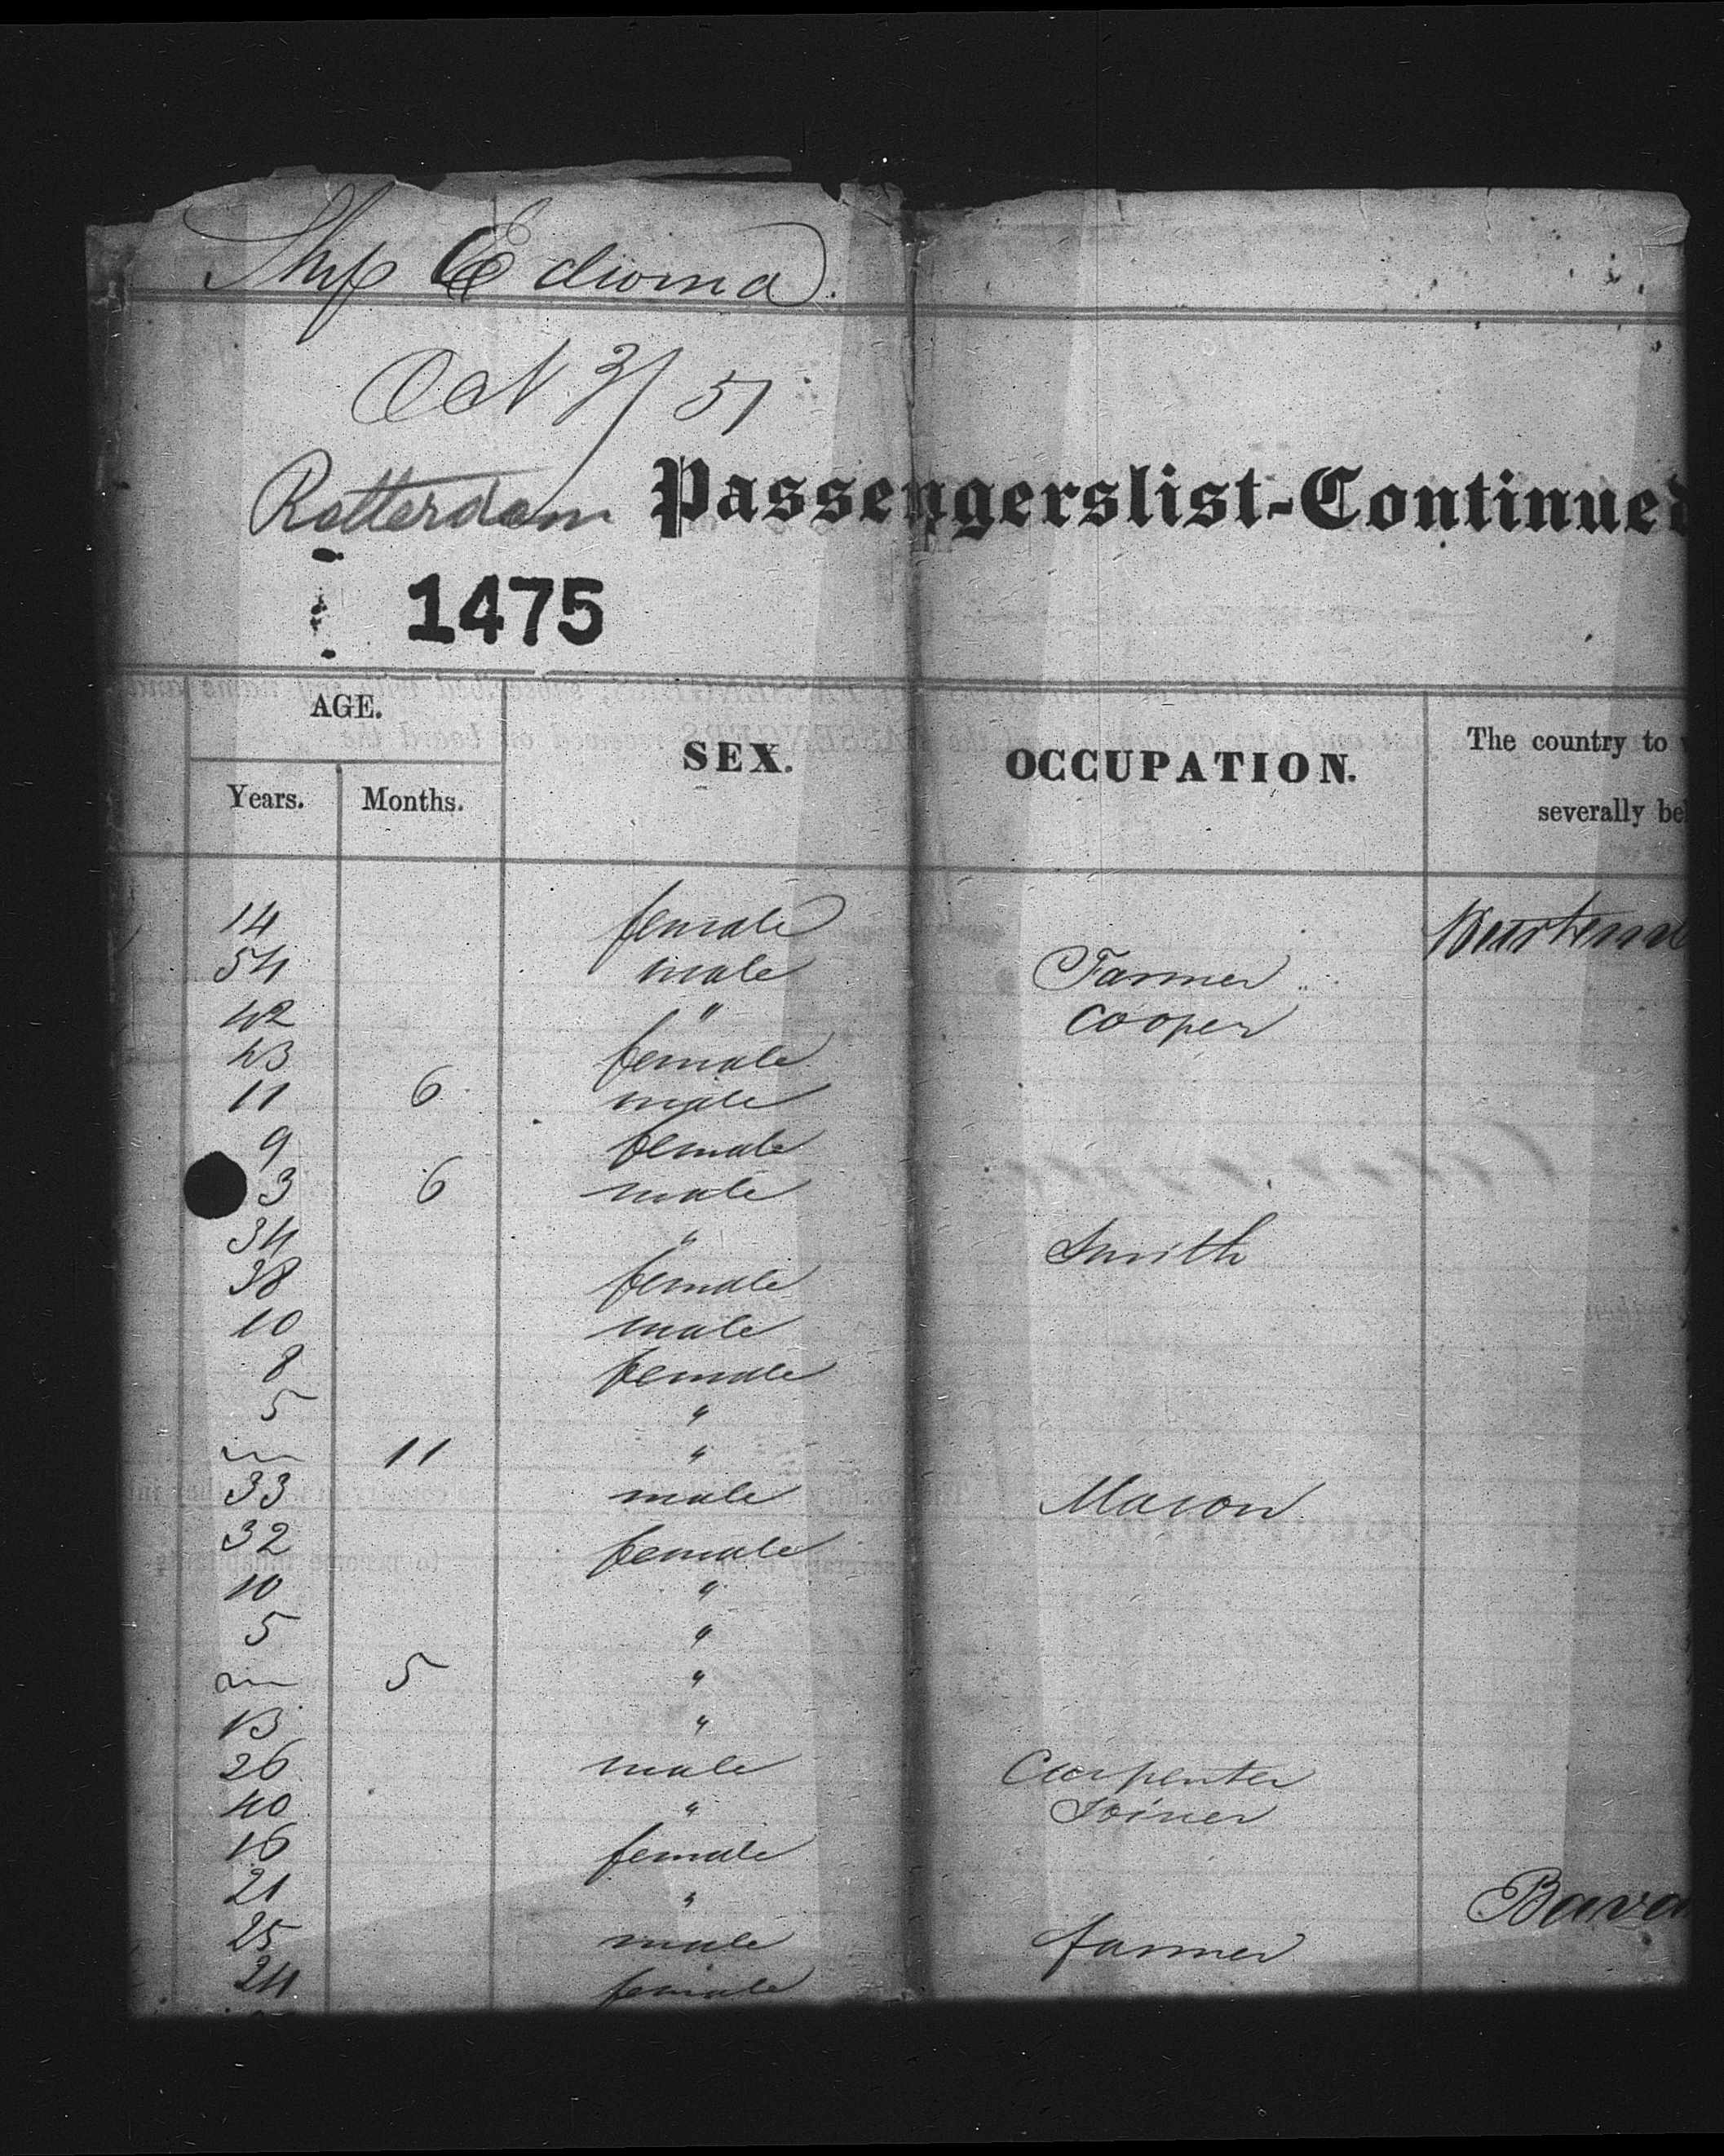 Ship Edwina.
Oct 31/51
Rotterdam Passengerslist-Continued
1475
AGE. SEX. OCCUPATION. The country to
Years. Months. severally be
14 female Wurtem
54 male Farmer
42 " Cooper
43 female
11 6 male
9 female
3 6 male
34 " Smith
38 female
10 male
8 female
5 "
11 "
33 male Mason
32 female
10 "
5 "
5 "
13 "
26 male Carpenter
40 " Joiner
16 female
21 " Bava
25 male farmer
24 female